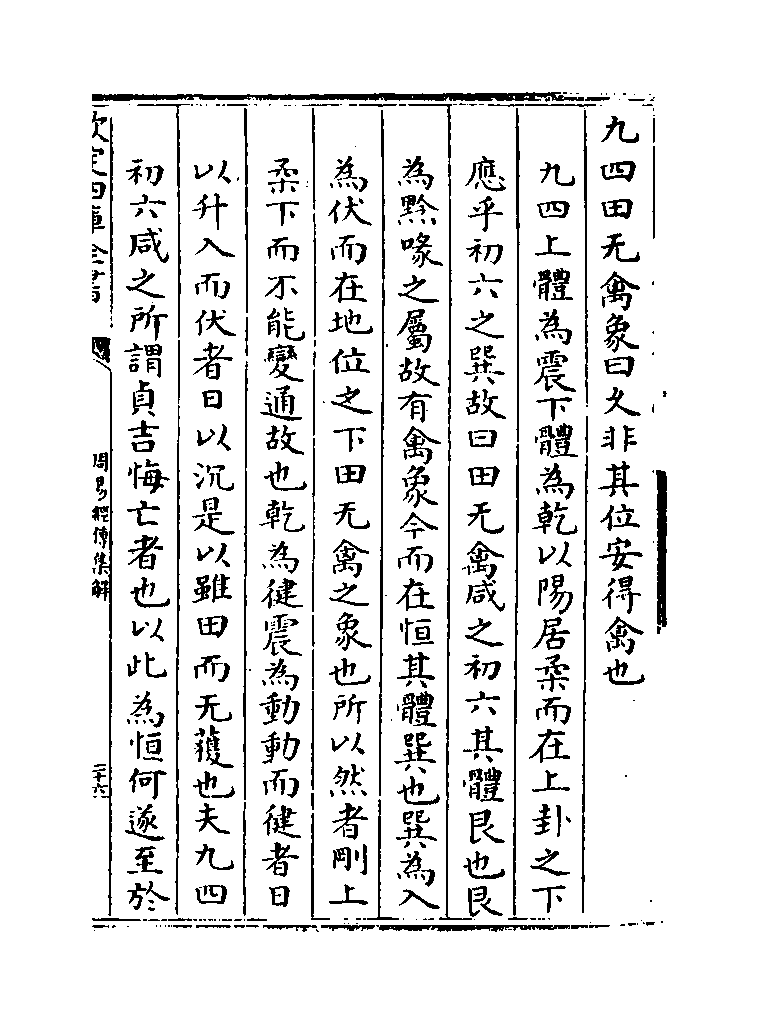 九四田无禽象曰久非其位安得禽也
九四上體為震下體為乾以陽居柔而在上卦之下
應乎初六之巽故曰田无禽咸之初六其體艮也艮
為黔喙之屬故有禽象今而在恒其體巽也巽為入
為伏而在地位之下田无禽之象也所以然者剛上
柔下而不能變通故也乾為健震為動動而健者日
以升入而伏者日以沉是以雖田而无獲也夫九四
初六咸之所謂貞吉悔亡者也以此為恒何遂至於
欽定四庫全書
周易經傳集解
二十六